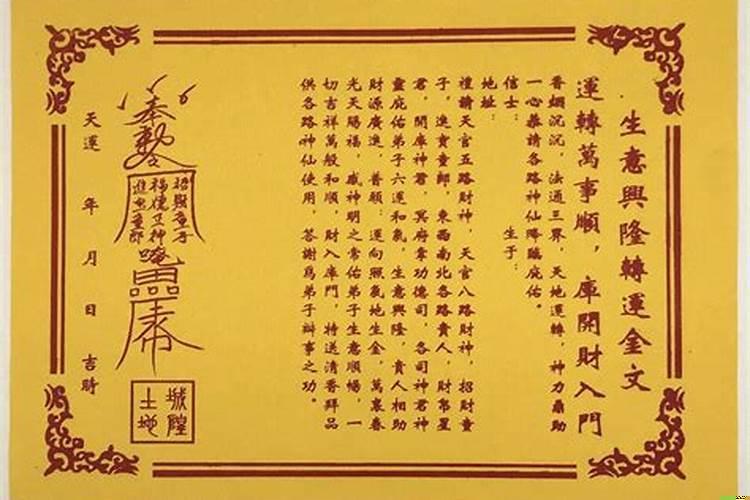 生意興隆轉運金文
運轉萬事順，庫開財入門
香烟沉沉，法通三界，天地運轉，神力鼎助
一心恭請各路神仙降臨庇佑。
信士：　　　　　生于：
地址：
禮請天官五路財神，天官八路財神，招財童
子，進寶童郎，東西南北各路貴人，財帛星
君，開庫神君，冥府掌功德司，各司神君神
靈庇佑弟子六運和氣，生意興隆，貴人相助
財源廣進，普願：運向照氣地生金，萬裏春
光天賜福，感神明之常佑弟子生意順暢，一
切吉祥萬般和順，財入庫門，特送清香拜品
供各路神仙使用，答謝爲弟子辦事之功。
奉勅令
招財童子
福德正神
進寶童郎
城隍
土地
天運　年　月　日　吉時